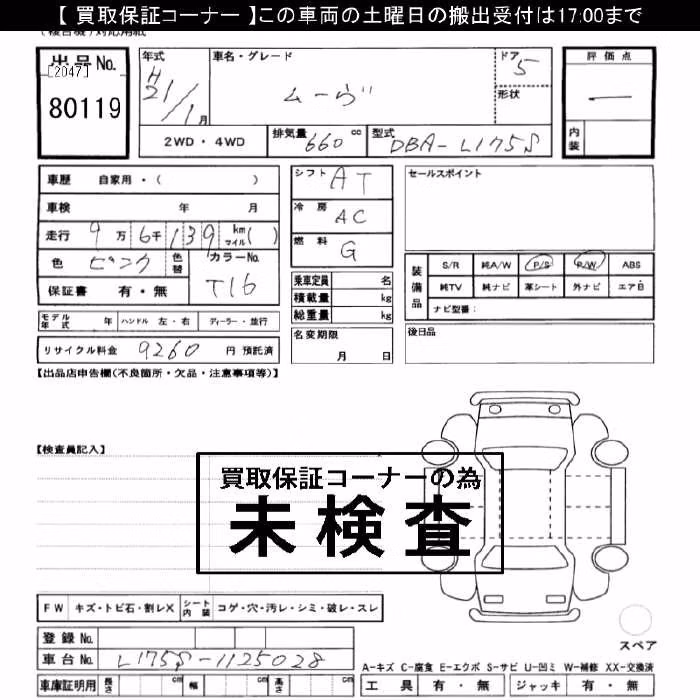 【 買取保証コーナー 】この車両の土曜日の搬出受付は17:00まで
出品No.
[2047]
80119
年式
H21/1月
車名・グレード
ムーヴ
ドア
5
形状
評価点
内装
2WD・4WD
排気量
660 cc
型式
DBA-L175S
車歴 自家用・( )
車検 年 月
走行 9万6千139 km マイル( )
色 ピンク 色替
カラーNo. T16
保証書 有・無
シフト AT
冷房 AC
燃料 G
乗車定員 名
積載量 kg
総重量 kg
名変期限 月 日
セールスポイント
装備品
S/R 純A/W P/S P/W ABS
純TV 純ナビ 革シート 外ナビ エアB
ナビ型番：
後日品
モデル年式 年 ハンドル 左・右 ディーラー・並行
リサイクル料金 9260 円 預託済
【出品店申告欄(不良箇所・欠品・注意事項等)】
【検査員記入】
買取保証コーナーの為
未検査
FW キズ・トビ石・割レX シート内装 コゲ・穴・汚レ・シミ・破レ・スレ
登録No.
車台No. L175S-1125028
車庫証明用 長さ cm 幅 cm 高さ cm
スペア
A-キズ C-腐食 E-エクボ S-サビ U-凹ミ W-補修 XX-交換済
工具 有・無 ジャッキ 有・無